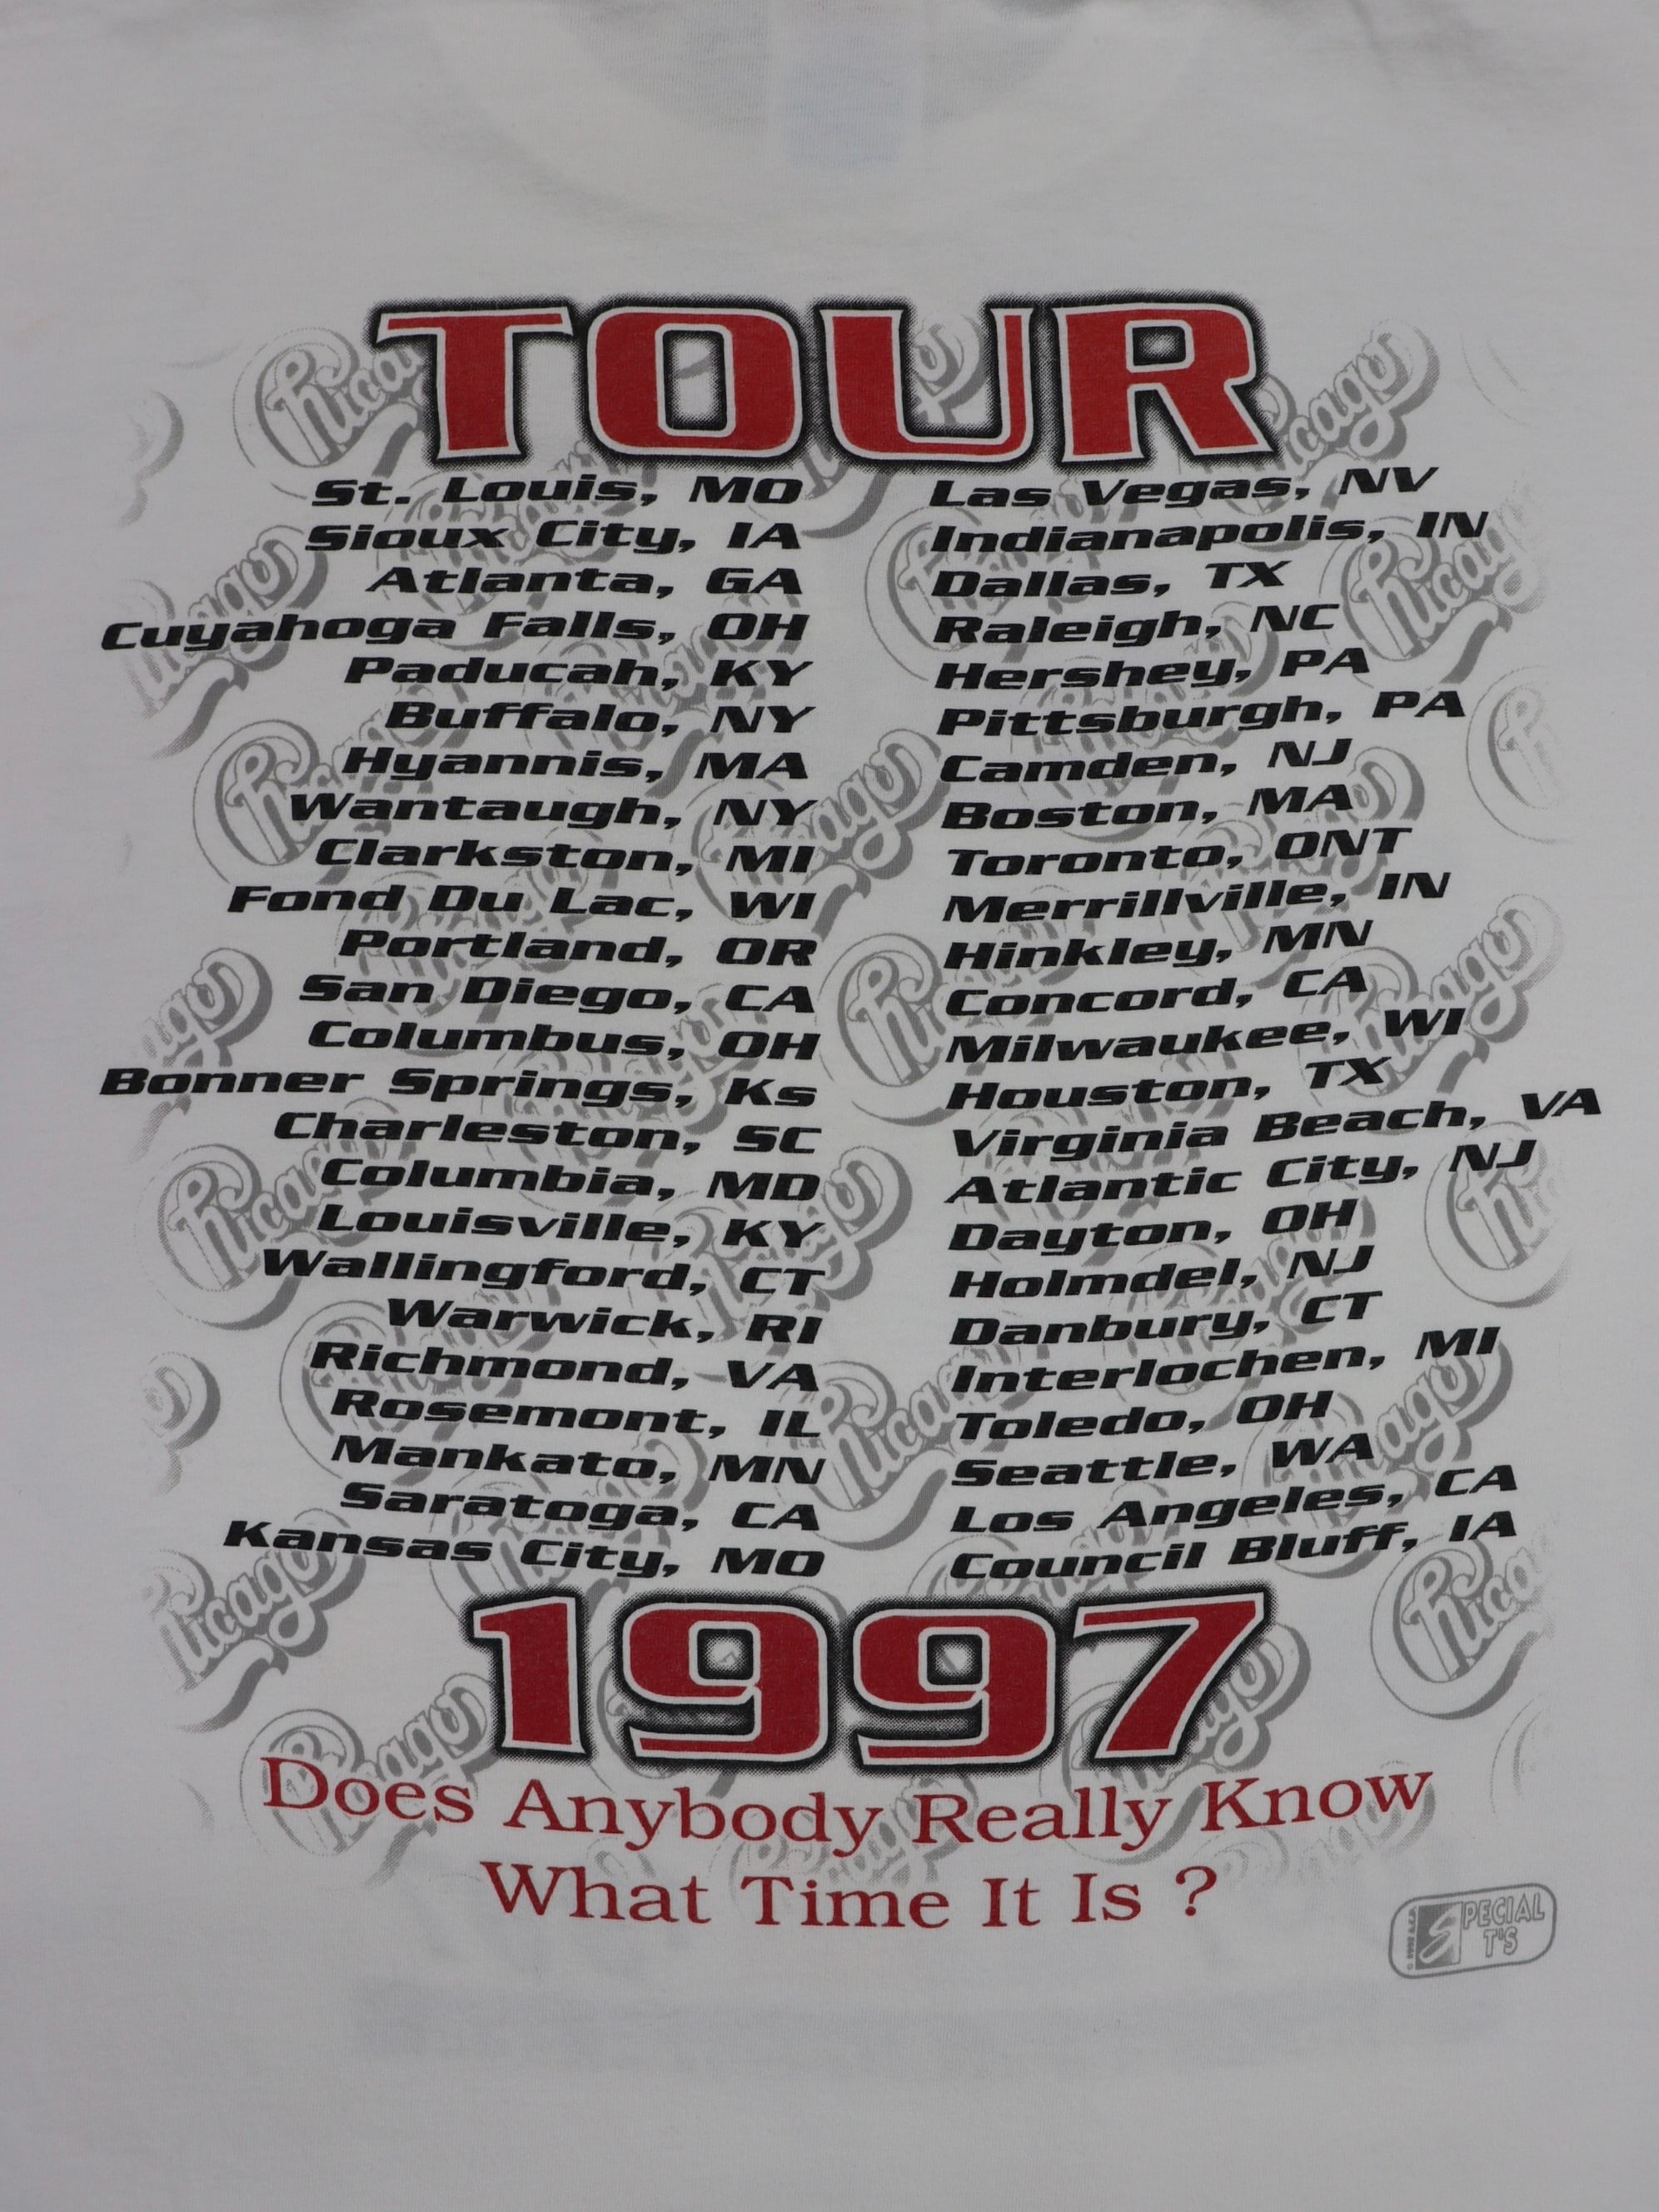 TOUR
St. Louis, MO
Sioux City, IA
Atlanta, GA
Cuyahoga Falls, OH
Paducah, KY
Buffalo, NY
Hyannis, MA
Wantaugh, NY
Clarkston, MI
Fond Du Lac, WI
Portland, OR
San Diego, CA
Columbus, OH
Bonner Springs, Ks
Charleston, SC
Columbia, MD
Louisville, KY
Wallingford, CT
Warwick, RI
Richmond, VA
Rosemont, IL
Mankato, MN
Saratoga, CA
Kansas City, MO
Las Vegas, NV
Indianapolis, IN
Dallas, TX
Raleigh, NC
Hershey, PA
Pittsburgh, PA
Camden, NJ
Boston, MA
Toronto, ONT
Merrillville, IN
Hinkley, MN
Concord, CA
Milwaukee, WI
Houston, TX
Virginia Beach, VA
Atlantic City, NJ
Dayton, OH
Holmdel, NJ
Danbury, CT
Interlochen, MI
Toledo, OH
Seattle, WA
Los Angeles, CA
Council Bluff, IA
1997
Does Anybody Really Know
What Time It Is ?
SPECIAL
T'S
Chicago